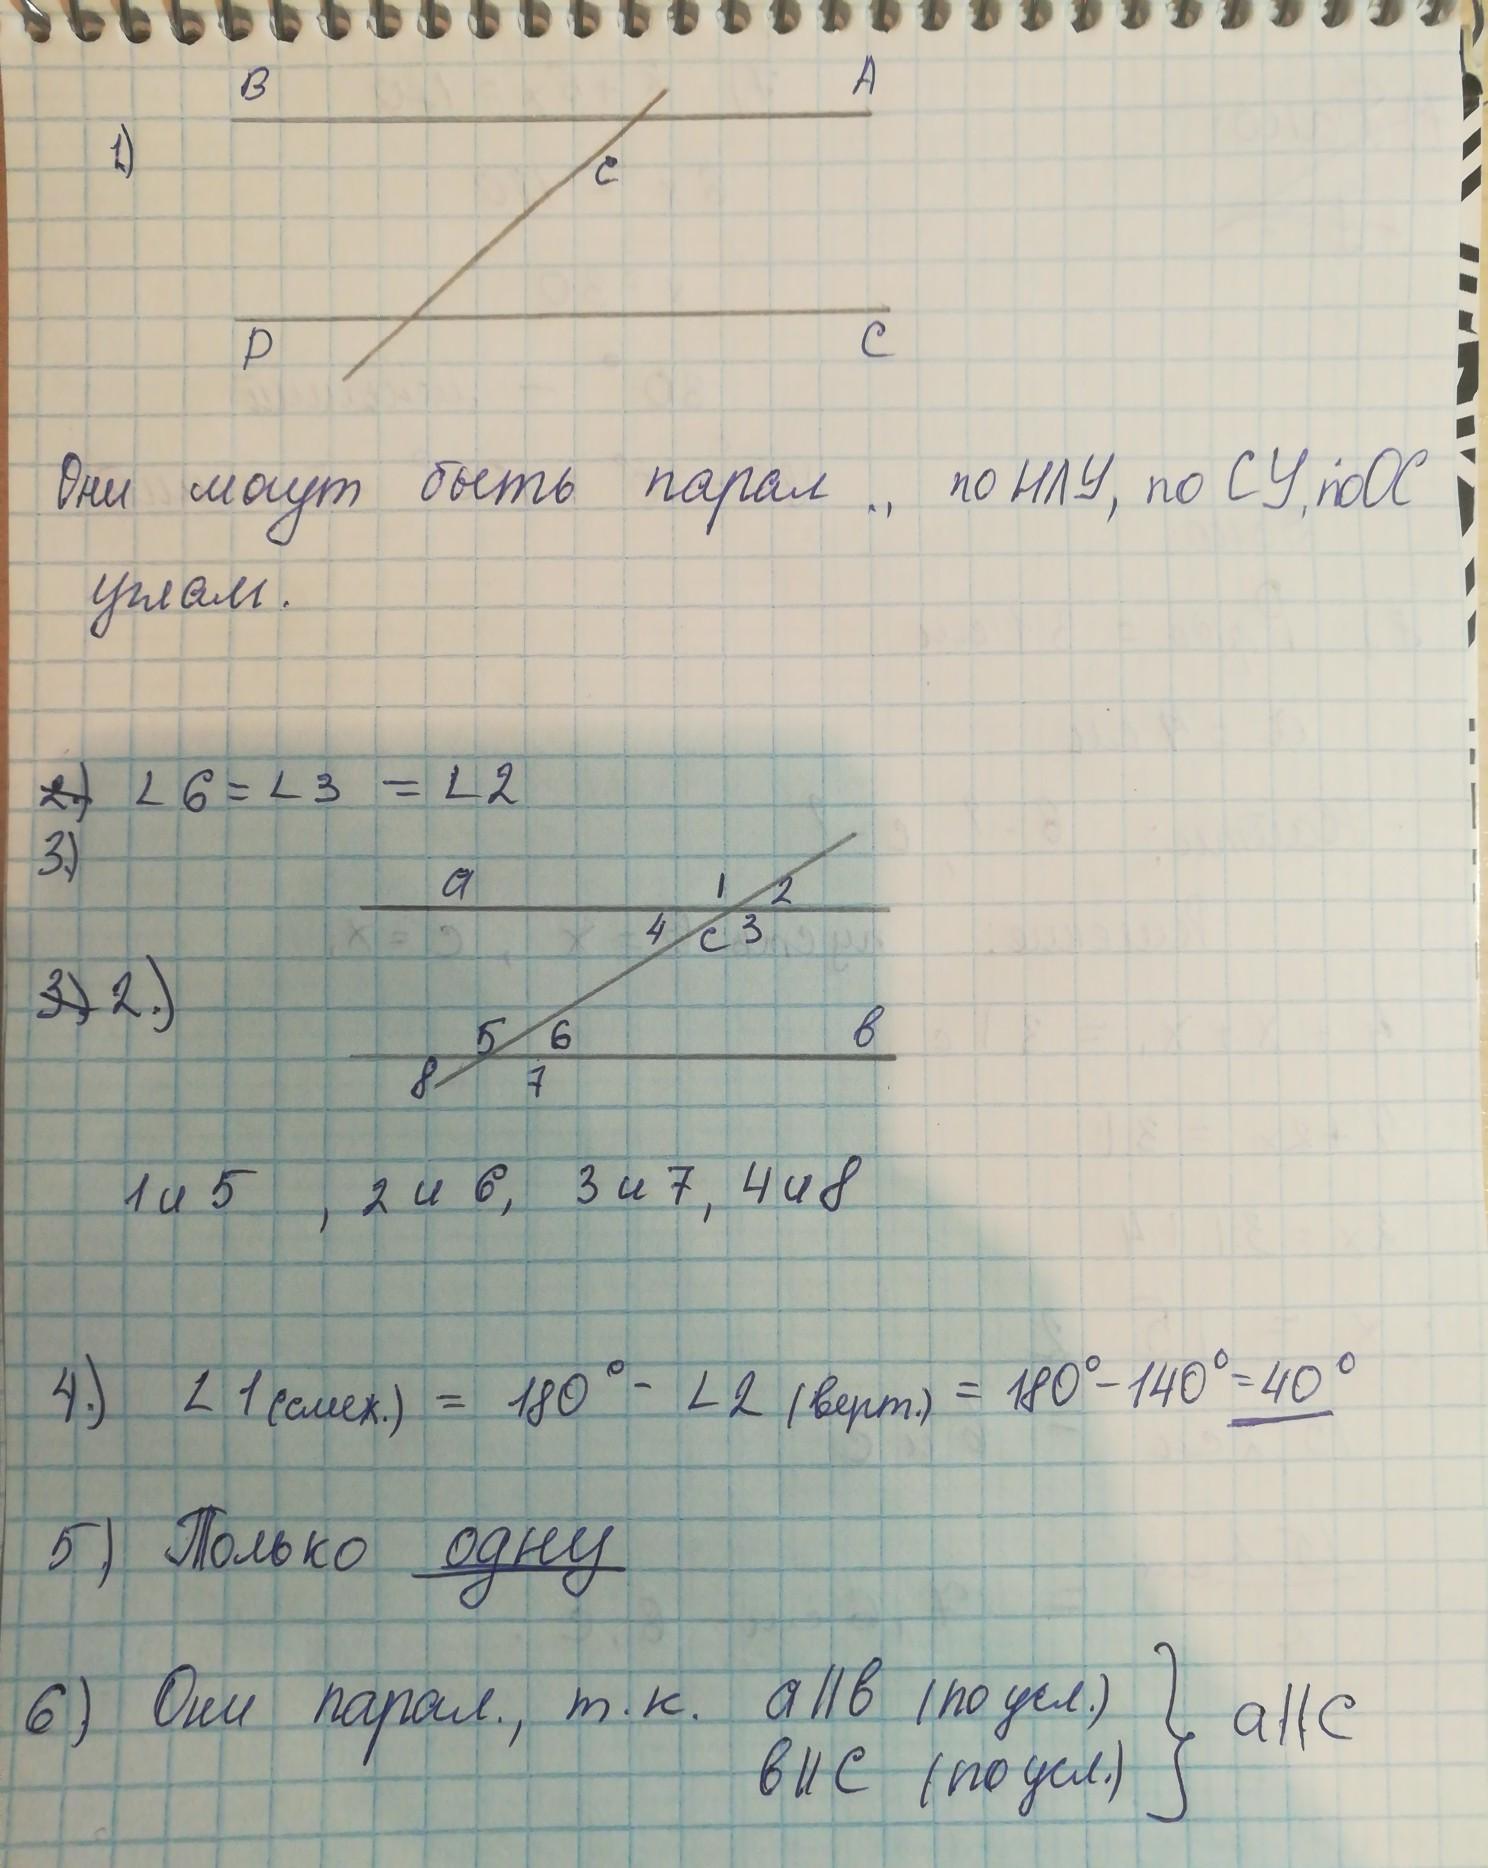 B A
1)
C
D C
Они могут быть парал., по НЛУ, по СУ, по ОС
углам.
2.) ∠6 = ∠3 = ∠2
3.)
a 1 2
4 C 3
3) 2.)
5 6 в
8 7
1 и 5 , 2 и 6, 3 и 7, 4 и 8
4.) ∠1 (смеж.) = 180° - ∠2 (верт.) = 180° - 140° = 40°
5) Только одну
6) Они парал., т.к. a||в (по усл.) } a||c
в||c (по усл.)